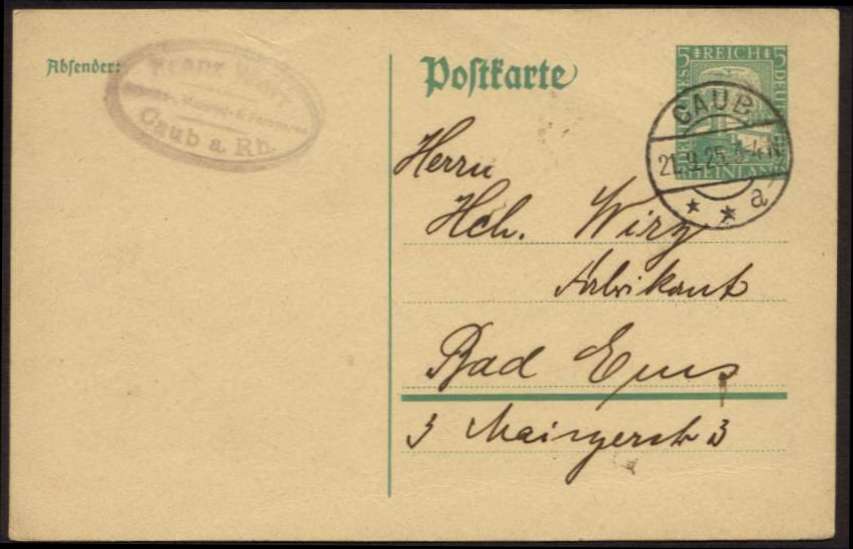 Absender:
Franz
Caub a. Rh.
Postkarte
5 REICH 5
CAUB
21.9.25. 3-4 N
* * a
Herrn
Hch. Wirz
Fabrikant
Bad Ems
3 Mainzerstr 3